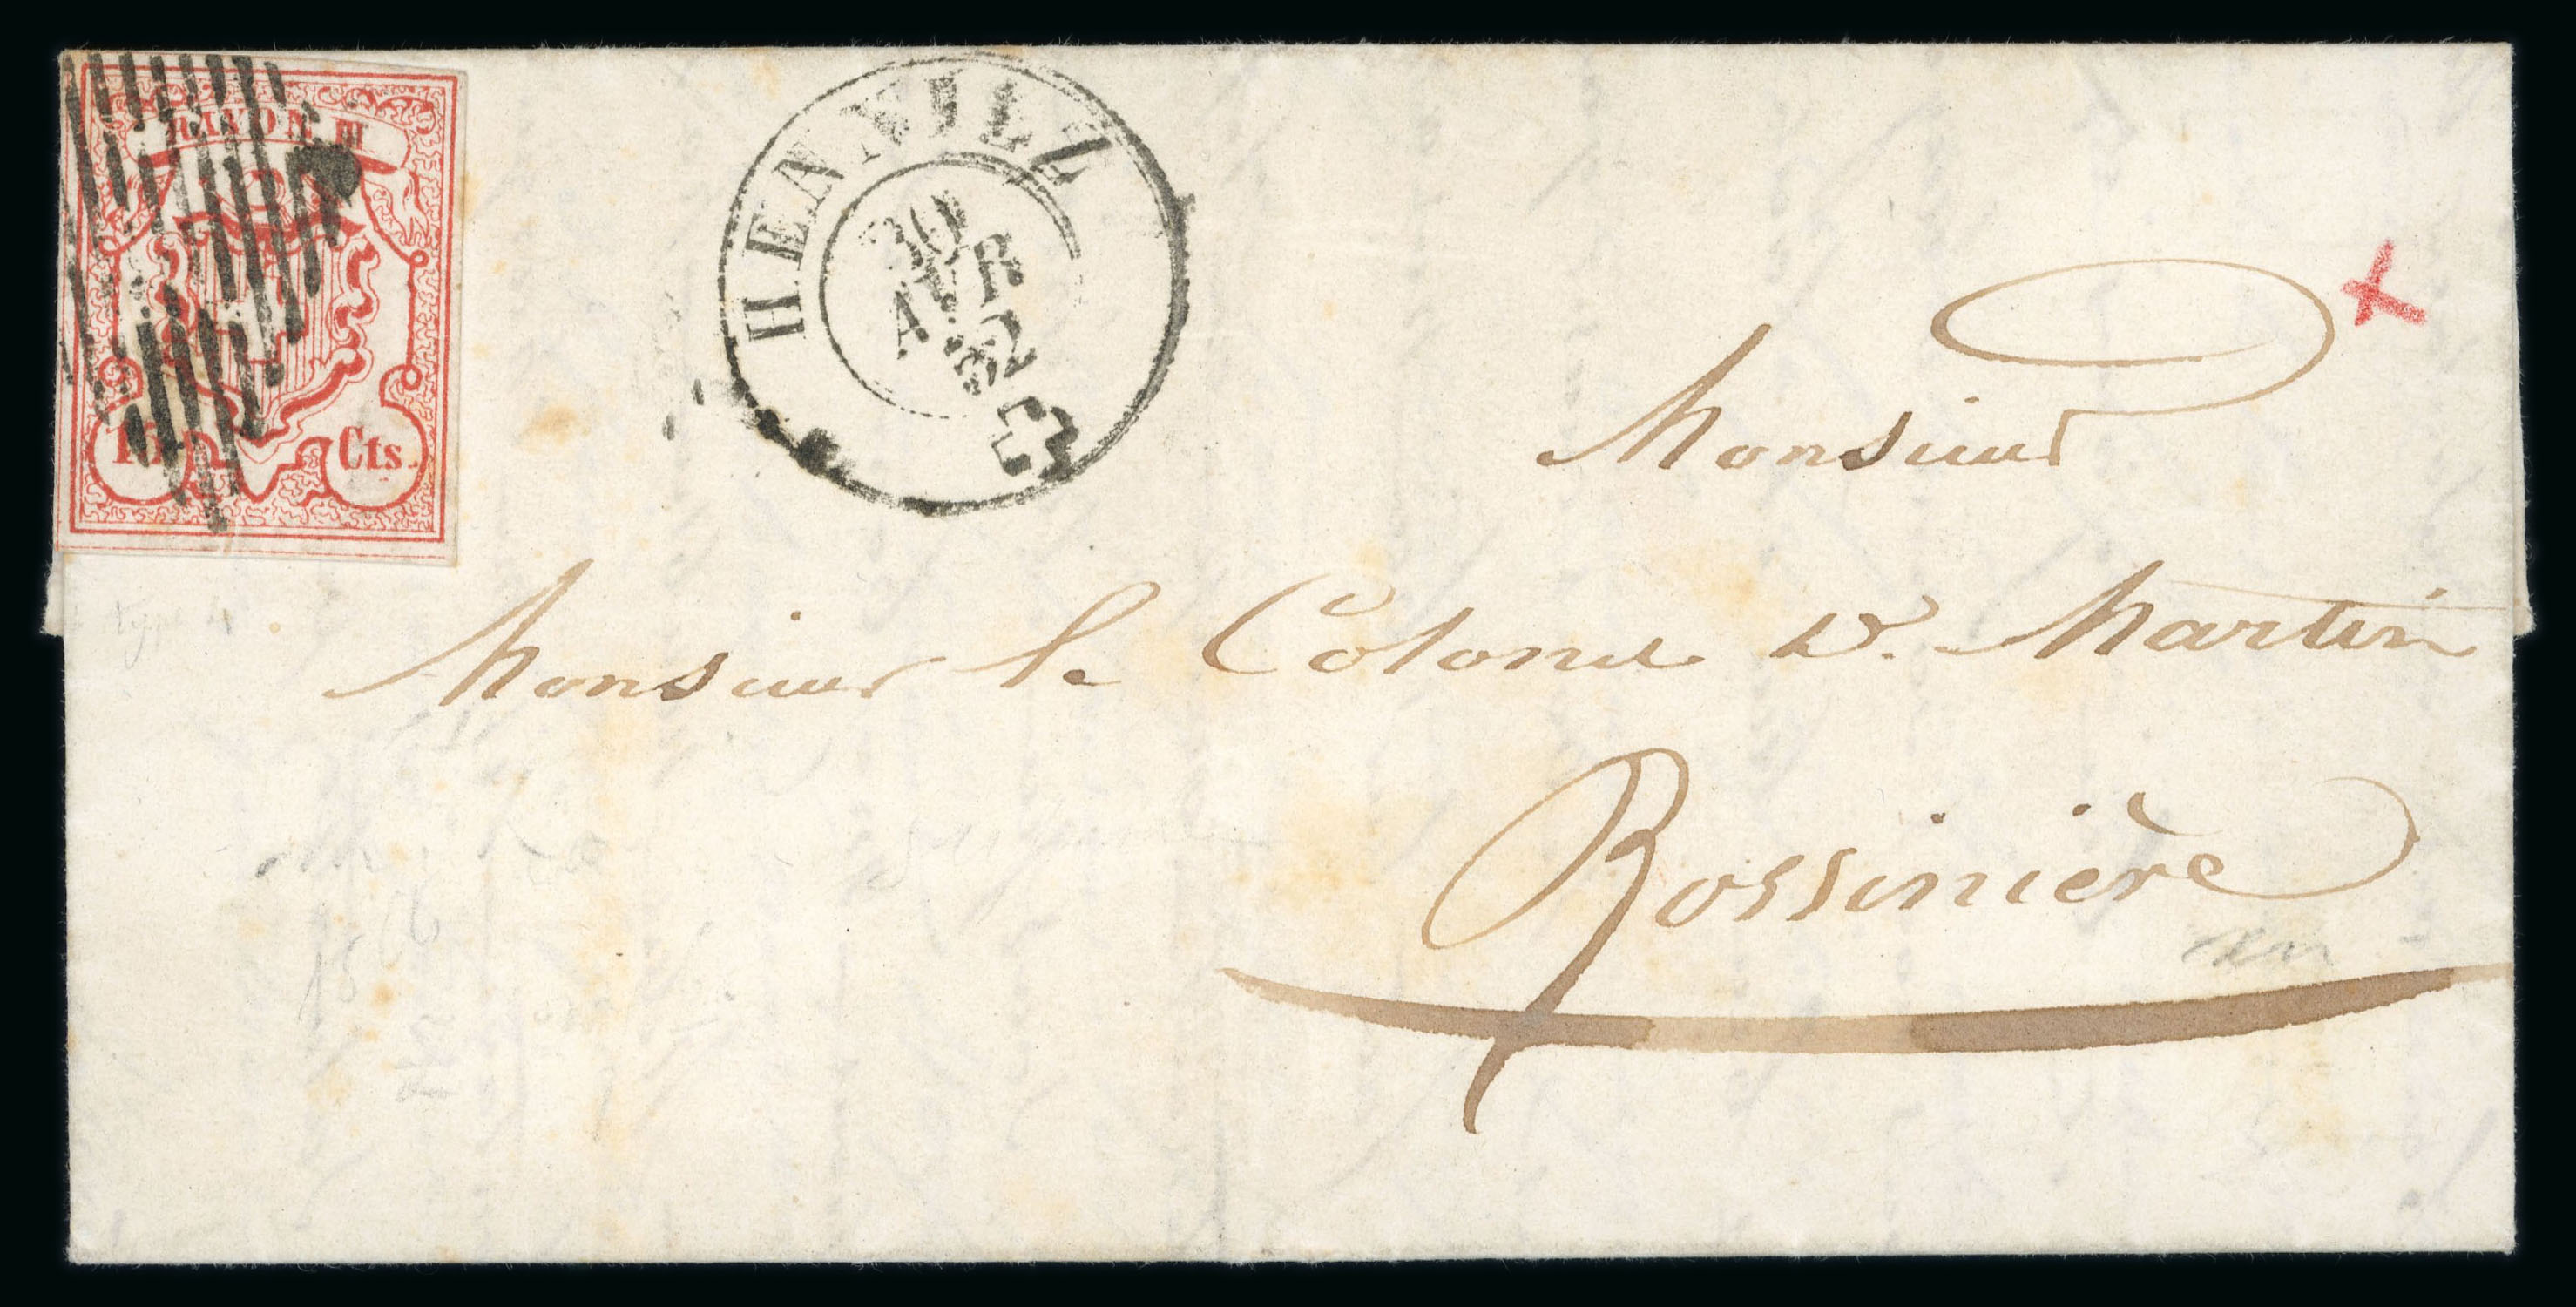 RAYON III
15 Cts.
HENNIEZ
30
AVR
52
Monsieur
Monsieur le Colonel D. Martin
type 4
Rossinière